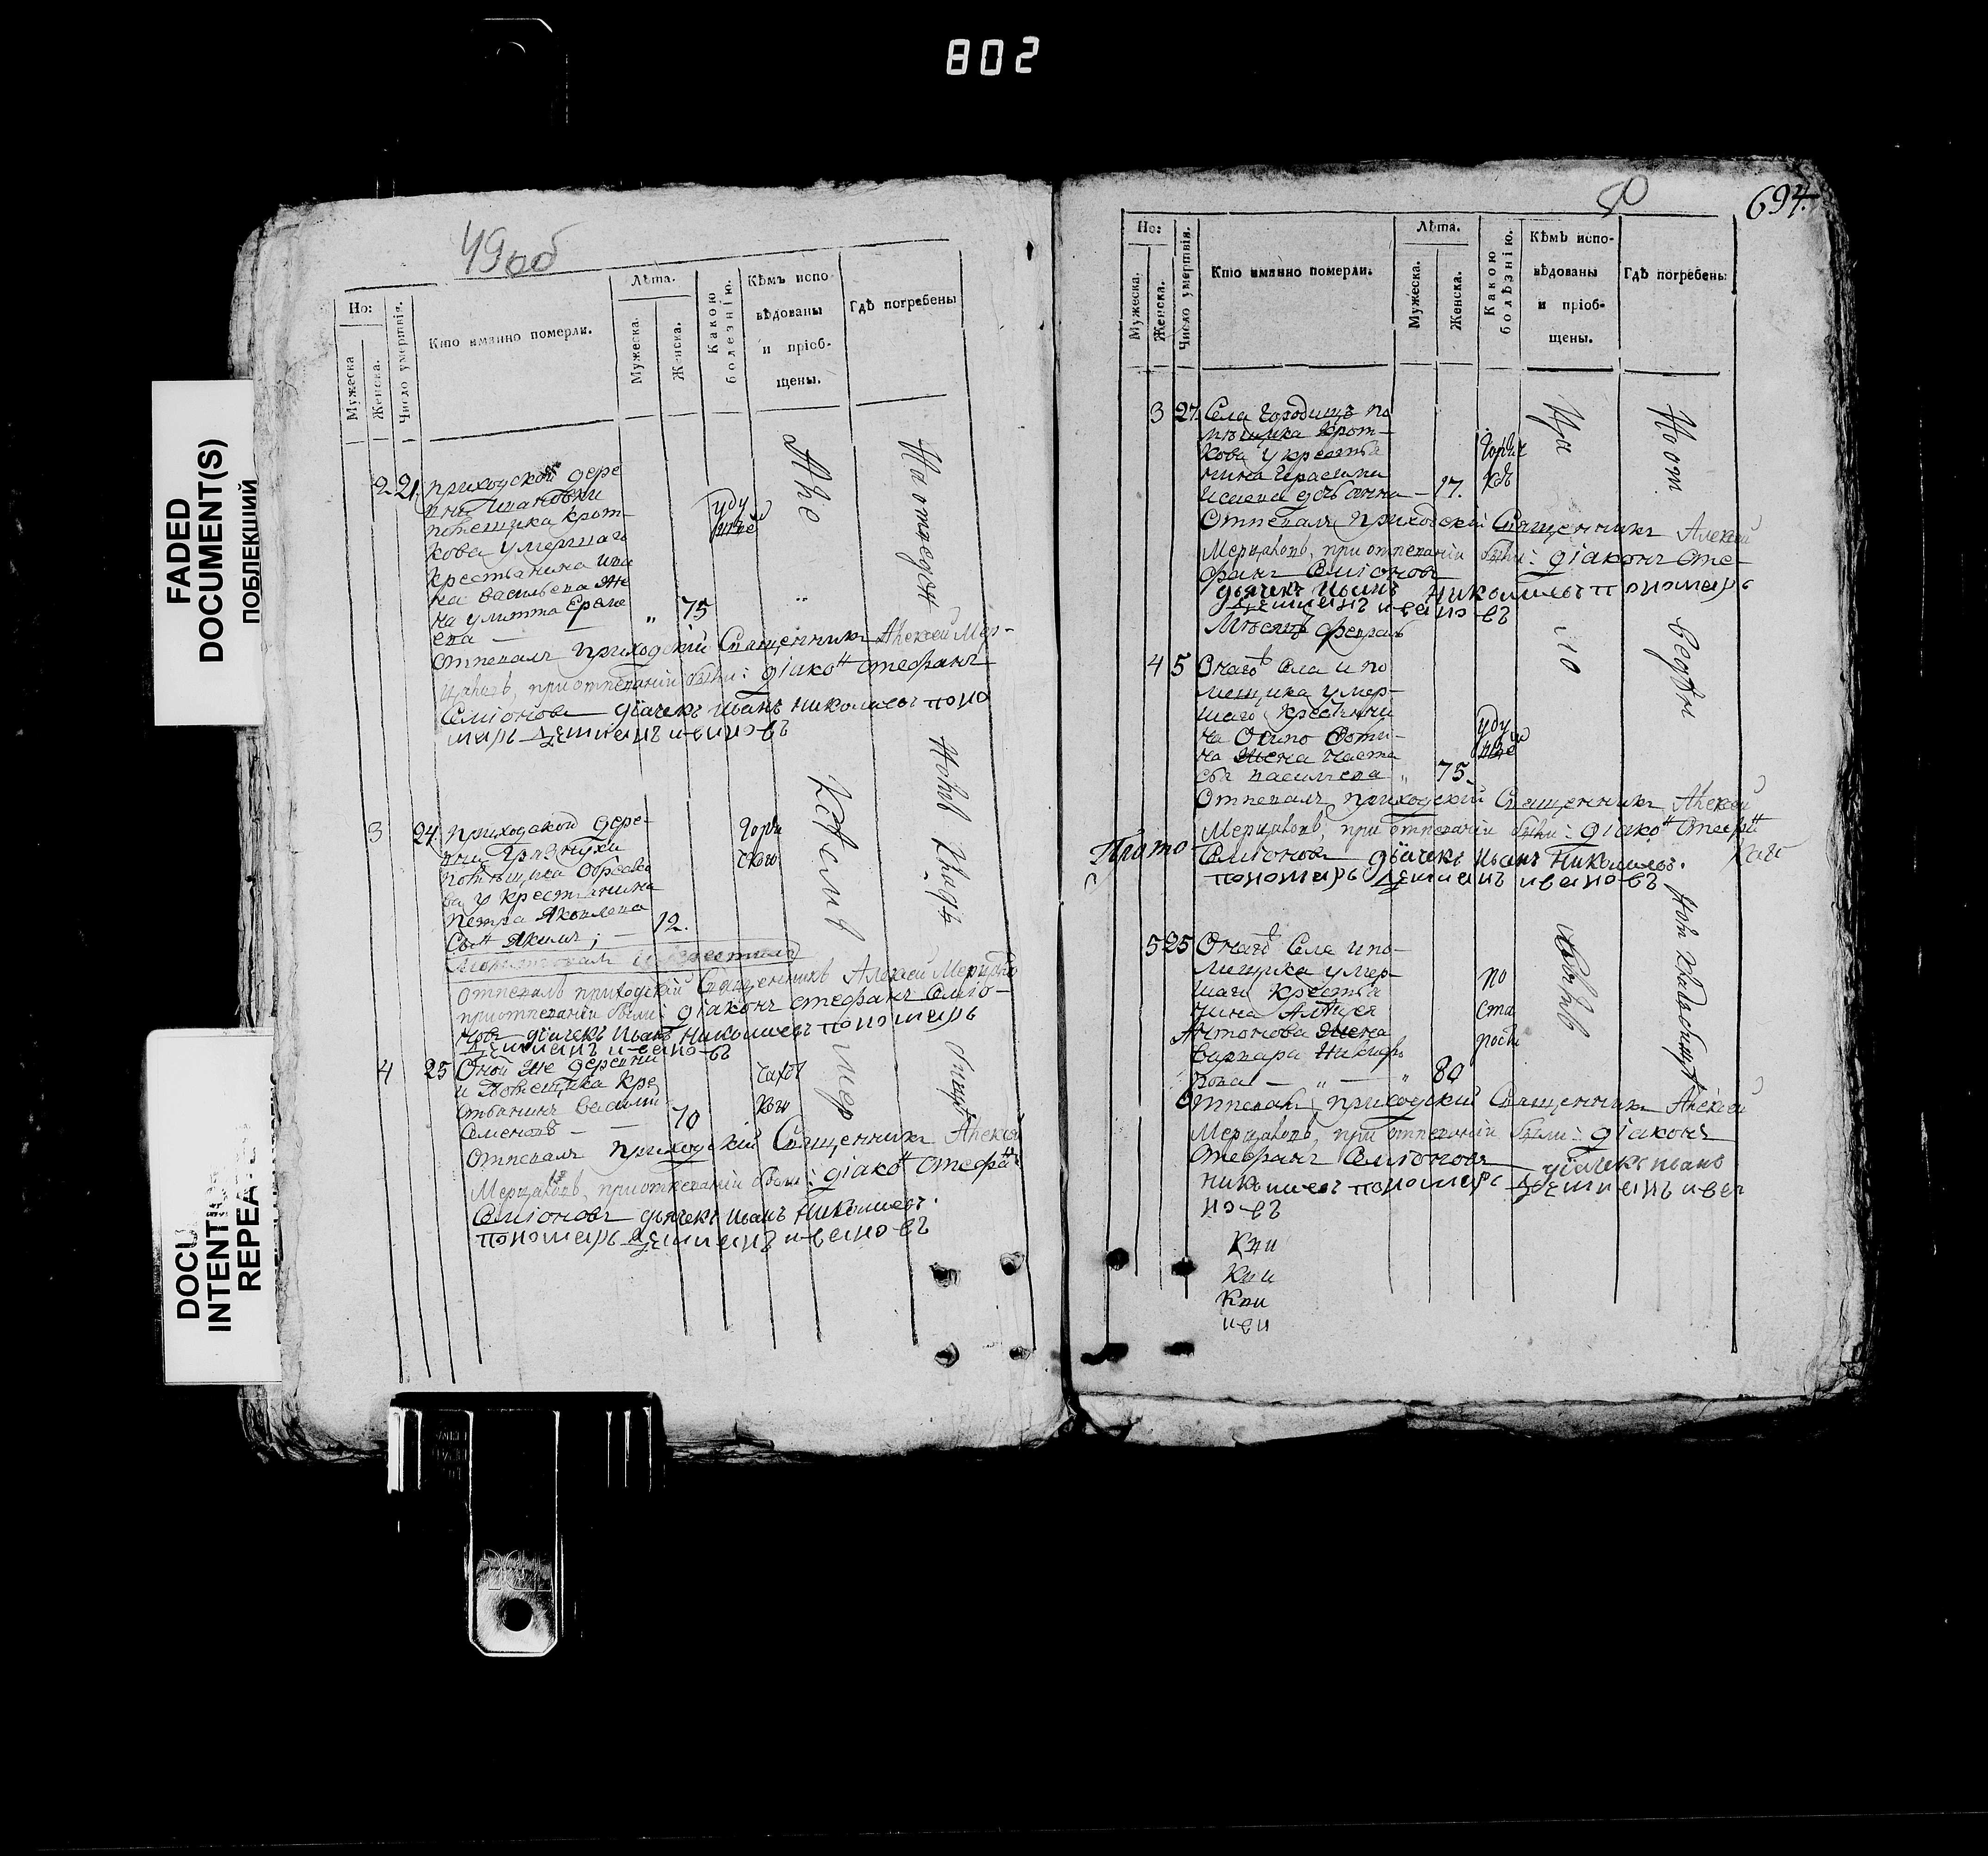 802
FADED
DOCUMENT(S)
ПОБЛЕКШИЙ
DOCU
INTENTI
REPEA
49об
Но:
Мужеска
Женска.
Число умертвія.
Кто имянно померли.
Лѣта.
Мужеска.
Женска.
Какою
болезнію.
Кѣмъ испо
вѣдованы
и пріоб-
щены.
Гдѣ погребены
2 21 приходской дере
вни Ивановки
помещика Крот-
кова умершаго
крестьянина Ива
на Васильева же
на Улитта Ереме
ева — „ 75
уду
шье
Отпевалъ приходскій Священникъ Алексей Мер-
цаловъ, при отпеваніи были: діаконъ Стефанъ
Симоновъ дiачекъ Иванъ Николаевъ поно
марь Демианъ Ивановъ
3 24 приходской дере-
вни Грязнухи
помѣщика
у крестьянина
Петра Яковлева
Сынъ Якимъ; — 12.
Горя
чкою
Отпевалъ приходскій Священникъ Алексей Мерцаловъ
при отпеваніи были: діаконъ Стефанъ Симо-
новъ дiачекъ Иванъ Николаевъ пономарь
Демианъ Ивановъ
4 25 Оной же деревни
и помещика кре
стьянинъ Васили
Семеновъ — — 70
Чахот
кою
Отпевалъ приходскій Священникъ Алексей
Мерцаловъ, при отпеваніи были: діаконъ Стефанъ
Симоновъ дьячекъ Иванъ Николаевъ
пономарь Демианъ Ивановъ
50
694.
Но:
Мужеска.
Женска.
Число умертвія.
Кто имянно померли.
Лѣта.
Мужеска.
Женска.
Какою
болѣзнію.
Кѣмъ испо-
вѣдованы
и пріоб-
щены.
Гдѣ погребены
3 27 Села Городищъ по
мѣщика Крот-
кова у крестья
нина Герасима
Исаева дочь Анна — 17.
Отпевалъ приходскій Священникъ Алексей
Мерцаловъ, при отпеваніи были: діаконъ Сте-
фанъ Симоновъ
дьячекъ Иванъ Николаевъ пономарь
Демианъ Ивановъ
Месяцъ Февраль
4 5 Онагоъ Села и по
мещика умер-
шаго крестьяни
на Осипо Фоти-
на жена Наста
сья Васильева „ 75.
уду
шье
Отпевалъ приходскій Священникъ Алексей
Мерцаловъ, при отпеваніи были: діаконъ Стефанъ
Симоновъ дьячекъ Иванъ Николаевъ.
пономарь Демианъ Ивановъ
Прото
5 25 Онагоъ Села и по-
мищика умер-
шаго крестья
нина
Антонова жена
Варвара Никифо
рова — „ — „ 80
по
ста
рости
Отпевалъ приходскій Священникъ Алексей
Мерцаловъ, при отпеваніи были: діаконъ
Стефанъ Симоновъ дiачекъ Иванъ
Николаевъ пономарь Демианъ Ива
новъ